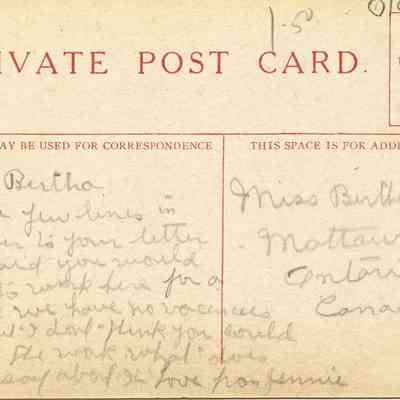 1-5
IVATE POST CARD.
AY BE USED FOR CORRESPONDENCE
THIS SPACE IS FOR ADD
Bertha
few lines in
to your letter
said you would
to work here for a
we have no vacancies
I don't think you would
the work what does
say about it Love from Jennie
Miss Berth
Mattaw
Ontari
Cana